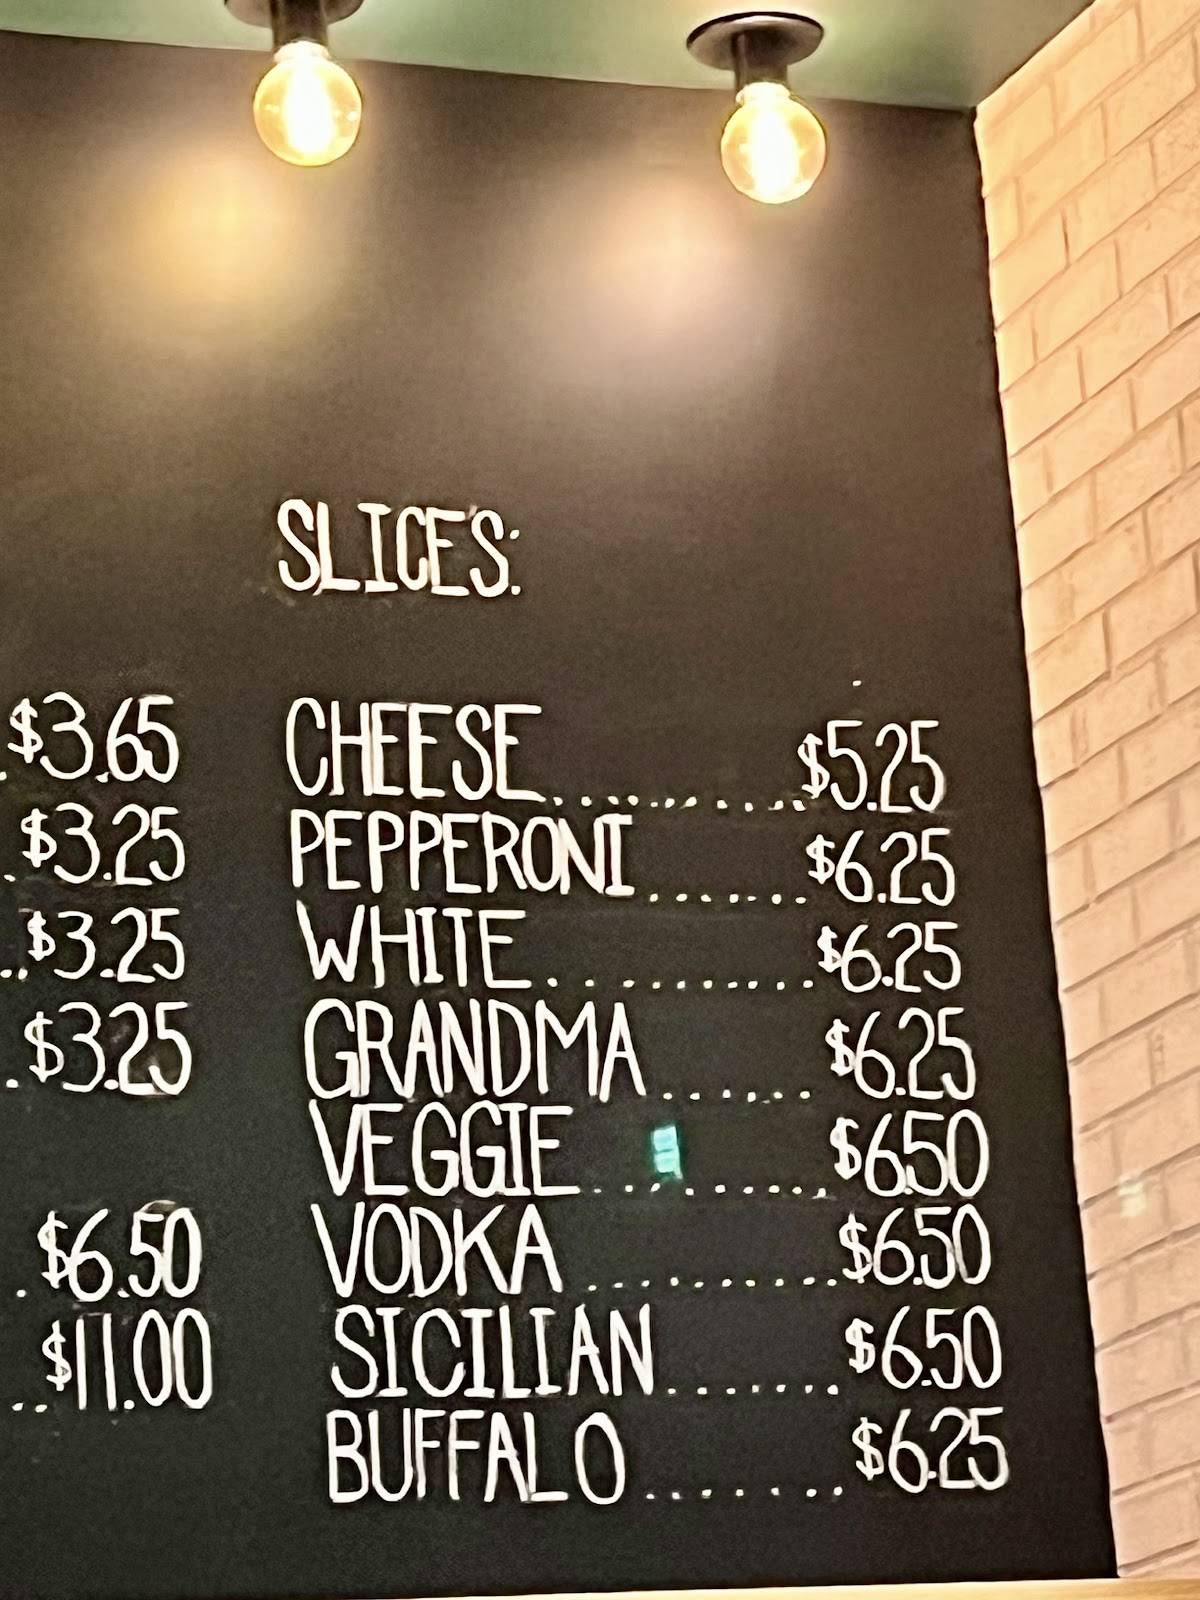 SLICES:
$3.65
$3.25
$3.25
$3.25
$6.50
$11.00
CHEESE..........$5.25
PEPPERONI.......$6.25
WHITE...........$6.25
GRANDMA...... $6.25
VEGGIE..........$6.50
VODKA..........$6.50
SICILIAN.......$6.50
BUFFALO.......$6.25